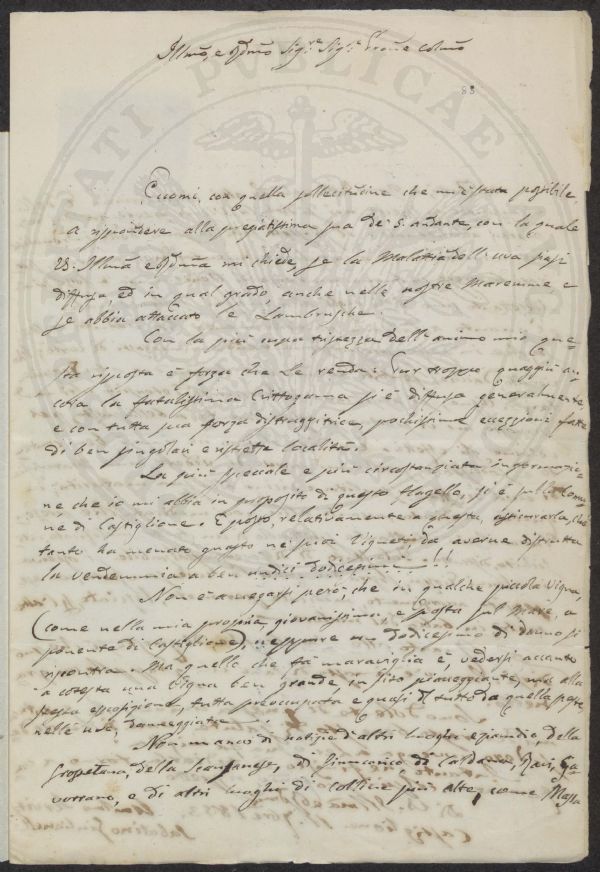 Illmo, e Rdmo Sigre Sigr Prone Colmo
88
Eccomi, con quella sollecitudine che mi è stata possibile,
a rispondere alla pregiatissima sua de' 5. andante, con la quale
VS. Illma e Rdma mi chiede, se la Malattia dell'uva siasi
diffusa ed in qual grado, anche nelle nostre Maremme e
se abbia attaccato le Lambrusche.
Con la più cupa tristezza dell'animo mio que-
sta risposta è forza che Le renda: Pur troppo quaggiù an-
cora la fatalissima Crittogama si è diffusa generalmente,
e con tutta sua forza distruggitrice, pochissime eccezioni fatte
di ben singolari e ristrette località.
La più speciale e più circostanziata informazio-
ne che io mi abbia in proposito di questo flagello, si è sulla Comu-
ne di Castiglione. E posso, relativamente a questa, assicurarla, che
tanto ha menato guasto nei suoi Vigneti, da averne distrutta
la vendemmia a ben undici dodicesimi!!!
Non è a negarsi però, che in qualche piccola Vigna,
(come nella mia propria, giovanissima, e posta sul Mare, a
ponente di Castiglione), neppure un dodicesimo di danno si
riscontra. Ma quello che fa maraviglia è, vedersi accanto
a cotesta una Vigna ben grande, in sito pianeggiante, ma alla
stessa esposizione, tutta preoccupata e quasi del tutto da quella peste
nelle uve, danneggiata.
Non manco di notizie d'altri luoghi eziandio, della
Grossetana, della Scansanese, di Giuncarico, di Caldana, Ravi, Ga-
vorrano, e di altri luoghi di colline più alte, come Massa
PUBLICAE